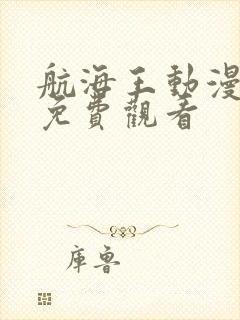 航海王動漫
免費觀看
庫魯